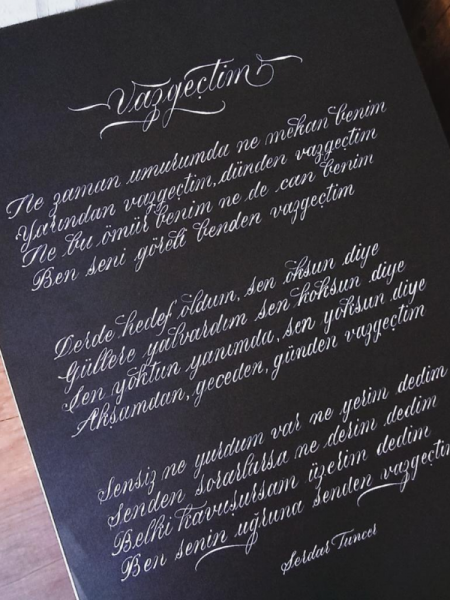 Vazgeçtim
Ne zaman umurumda ne mekan benim
Yarından vazgeçtim, dünden vazgeçtim
Ne bu ömür benim ne de can benim
Ben seni göreli benden vazgeçtim
Derde hedef oldum, sen oksun diye
Güllere yalvardım sen koksun diye
Sen yoktun yanımda, sen yoksun diye
Akşamdan, geceden, günden vazgeçtim
Sensiz ne yurdum var ne yerim dedim
Senden sorarlarsa ne derim dedim
Belki kavuşursam üzerim dedim
Ben senin uğruna senden vazgeçtim
Serdar Tuncer